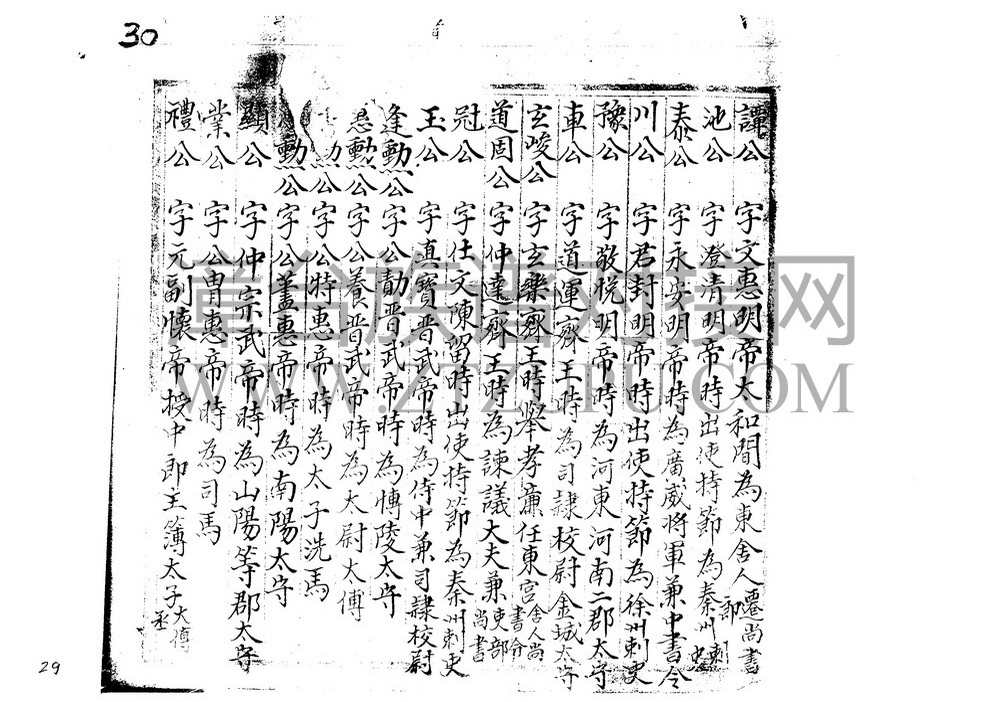 30
譚公 字文惠明帝太和間為東舍人遷尚書郎
池公 字澄清明帝時出使持節為秦州刺史
泰公 字永安明帝時為廣威將軍兼中書令
川公 字君封明帝時出使持節為徐州刺史
豫公 字敬悅明帝時為河東河南二郡太守
車公 字道運齊王時為司隸校尉金城太守
玄峻公 字玄樂齊王時舉孝廉任東宮舍人尚書分
道固公 字仲達齊王時為諫議大夫兼吏部尚書
冠公 字仕文陳留時出使持節為秦州刺史
玉公 字真寶晋武帝時為侍中兼司隸校尉
逢勳公 字公勣晋武帝時為慱陵太守
勳公 字公養晋武帝時為大尉太傅
公 字公特惠帝時為太子洗馬
勳公 字公盖惠帝時為南陽太守
顯公 字仲宗武帝時為山陽等郡太守
業公 字公胄惠帝時為司馬
禮公 字元副懷帝授中郎主簿太子太傅丞
29
壹谷族谱对接网
WWW.ZTZUPU.COM